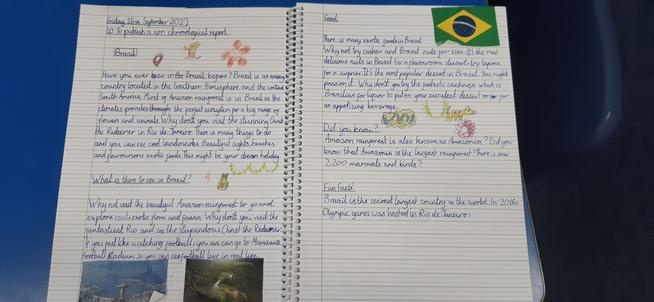 Friday 26th September 2023
LO: To publish a non chronological report.
Brazil
Have you ever been to Brazil before? Brazil is an
country located in the Southern Hemisphere and the
South America. Most of Amazon rainforest is in Brazil as the
climates provides the perfect for a big range of
flowers and animals. Why don't you visit the stunning Christ
the Redeemer in Rio de Janeiro. There is many things to do
and you can see cool landmarks. Beautiful sights, beaches
and flavoursome exotic foods. This might be your dream holiday
What is there to see in Brazil?
Why not visit the beautiful Amazon rainforest to go and
explore cool exotic flora and fauna. Why don't you visit the
fantastical Rio and see the stupendous Christ the Redeemer.
If you feel like watching football, you can go to Maracanã
football stadium so you can see football live in real life.
Food
There is many exotic foods in Brazil.
Why not try cashew and Brazil nuts for
delicious nuts in Brazil for a flavoursome dessert
for a surprise. It's the most popular dessert in Brazil. You might
Why don't you try the fantastic cachaça which is
Brazilian for liquor to put on your succulent dessert or for
an appetizing beverage.
Did you know?
Amazon rainforest is also known as Amazonia? Did you
know that Amazonia is the largest rainforest? There is over
2,200 mammals and birds?
Fun Fact!
Brazil is the second largest country in the world. In 2016
Olympic games was hosted in Rio de Janeiro.